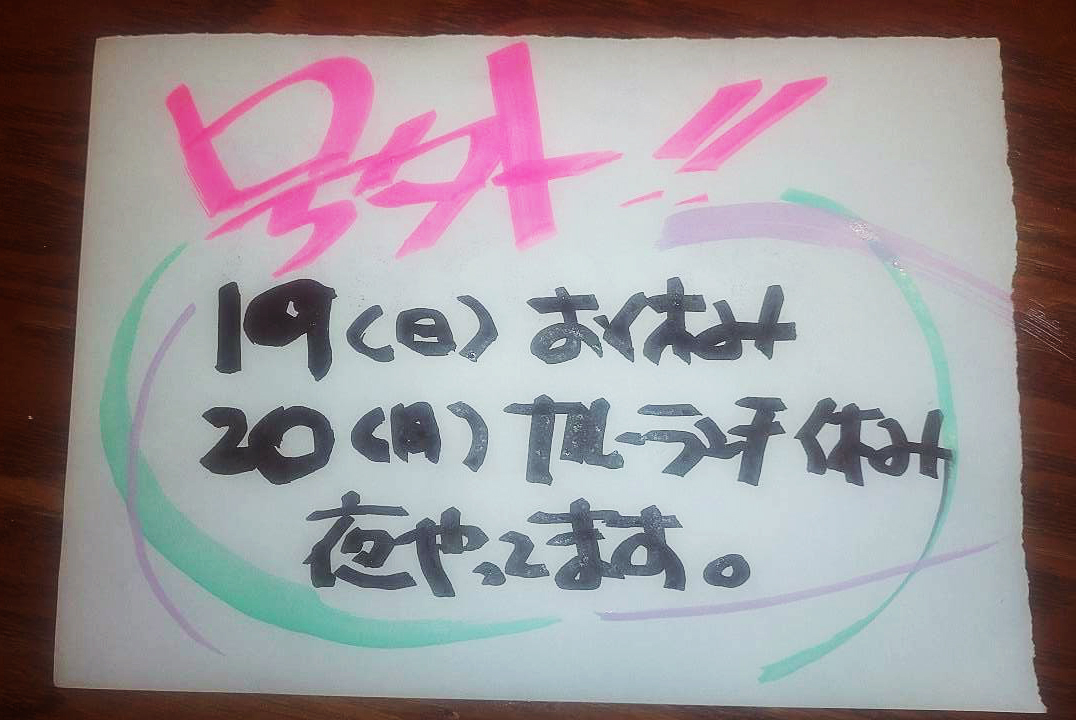 号外!!
19(日) お休み
20(月) カレーランチ休み
夜やってます。